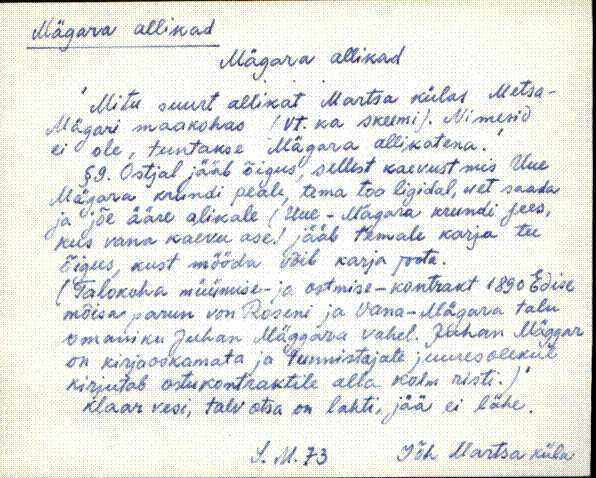 Mägara allikad
Mägara allikad
"Mitu suurt allikat Martsa külas Metsa-
Mägari maakohas (vt. ka skeemi). Nimesid
ei ole, tuntakse Mägara allikatena."
"§9. Ostjal jääb õigus, sellest kaevust mis Uue
Mägara krundi peale, tema toa ligidal, vet saada
ja jõe ääre alikale (Uue-Mägara krundi sees,
kus vana kaevu ase) jääb temale karja tee
õigus, kust mööda võib karja joota.
(Talokoha müümise- ja ostmise-kontrakt 1890 Edise
mõisa parun von Roseni ja Vana-Mägara talu
omaniku Juhan Mäggara vahel. Juhan Mäggar
on kirjaoskamata ja tunnistajate juuresolekul
kirjutab ostukontraktile alla kolm risti.)"
Klaar vesi, talv otsa on lahti, jää ei lähe.
S. M. 73 Jõh Martsa küla